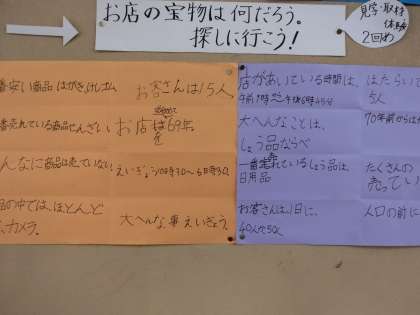 お店の宝物は何だろう。
探しに行こう!
見学・取材
体験
2回め
番安い商品 はがきけしゴム
お客さんは15人
番売れている商品せんざい
お店は69年
んなに商品は売っていない
大へんな事 えいぎょう。
店があいている時間は、
午前9時
午後6時45分
大へんなことは、
しょう品ならべ
一番売れているしょう品は、
日用品
お客さんは1日に、
40人か50人
はたらいて
5人
70年前からは
たくさんの
売ってい
人口の前に
の中では、ほとんど
カメラ。